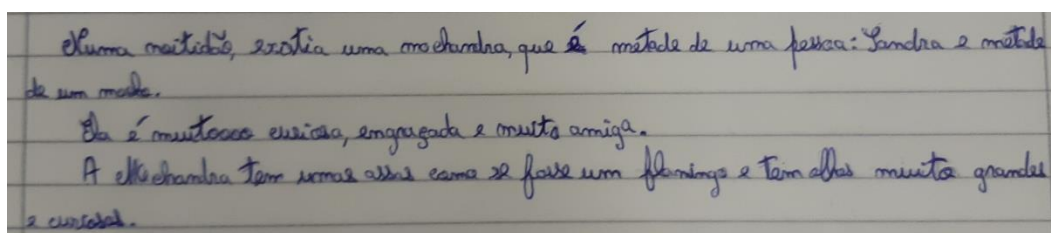 Numa meitidão, existia uma mochandra, que é metade de uma pessoa: Sandra e metade
de um mocho.
Ela é muitoooo curiosa, engraçada e muito amiga.
A Mochandra tem umas assas como se fosse um flamingo e tem olhos muito grandes
e curiosos.